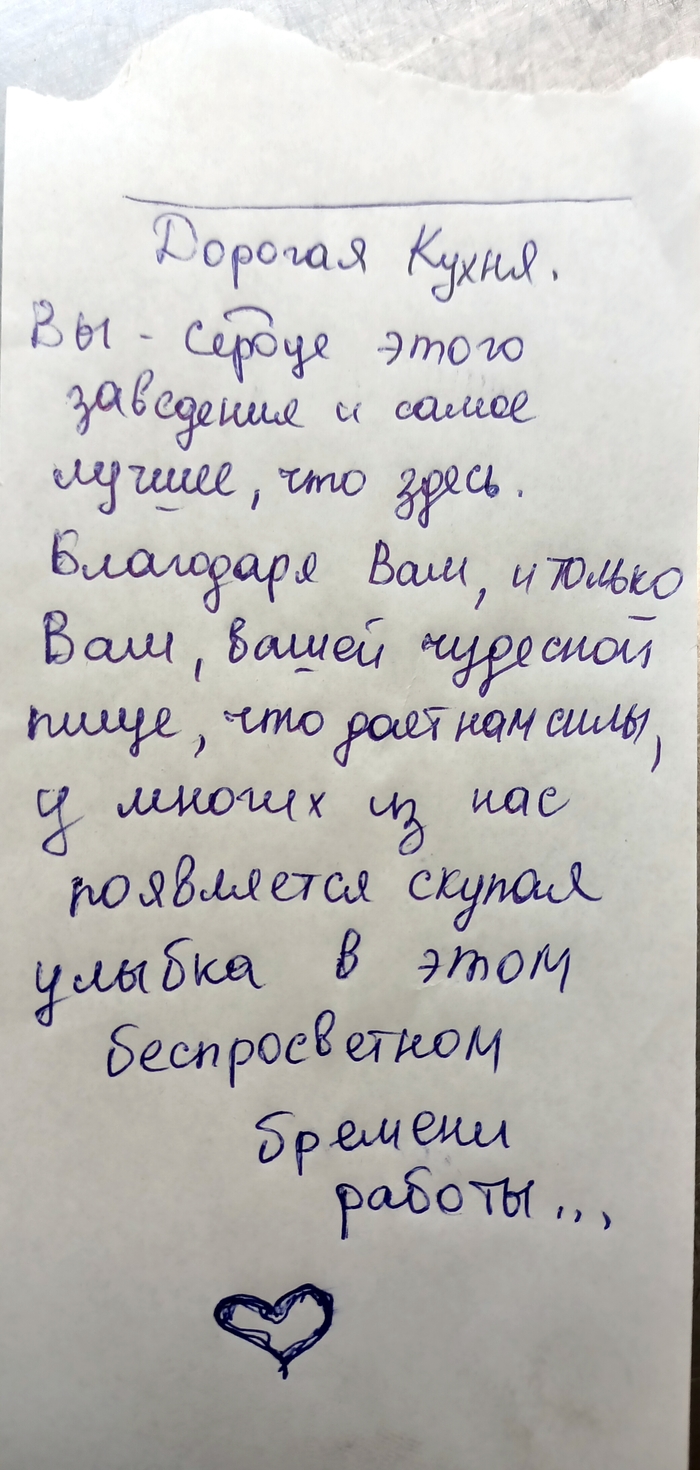 Дорогая Кухня.
Вы - сердце этого
заведения и самое
лучшее, что здесь.
Благодаря Вам, и только
Вам, вашей чудесной
пище, что дает нам силы,
у многих из нас
появляется скупая
улыбка в этом
беспросветном
бремени
работы...